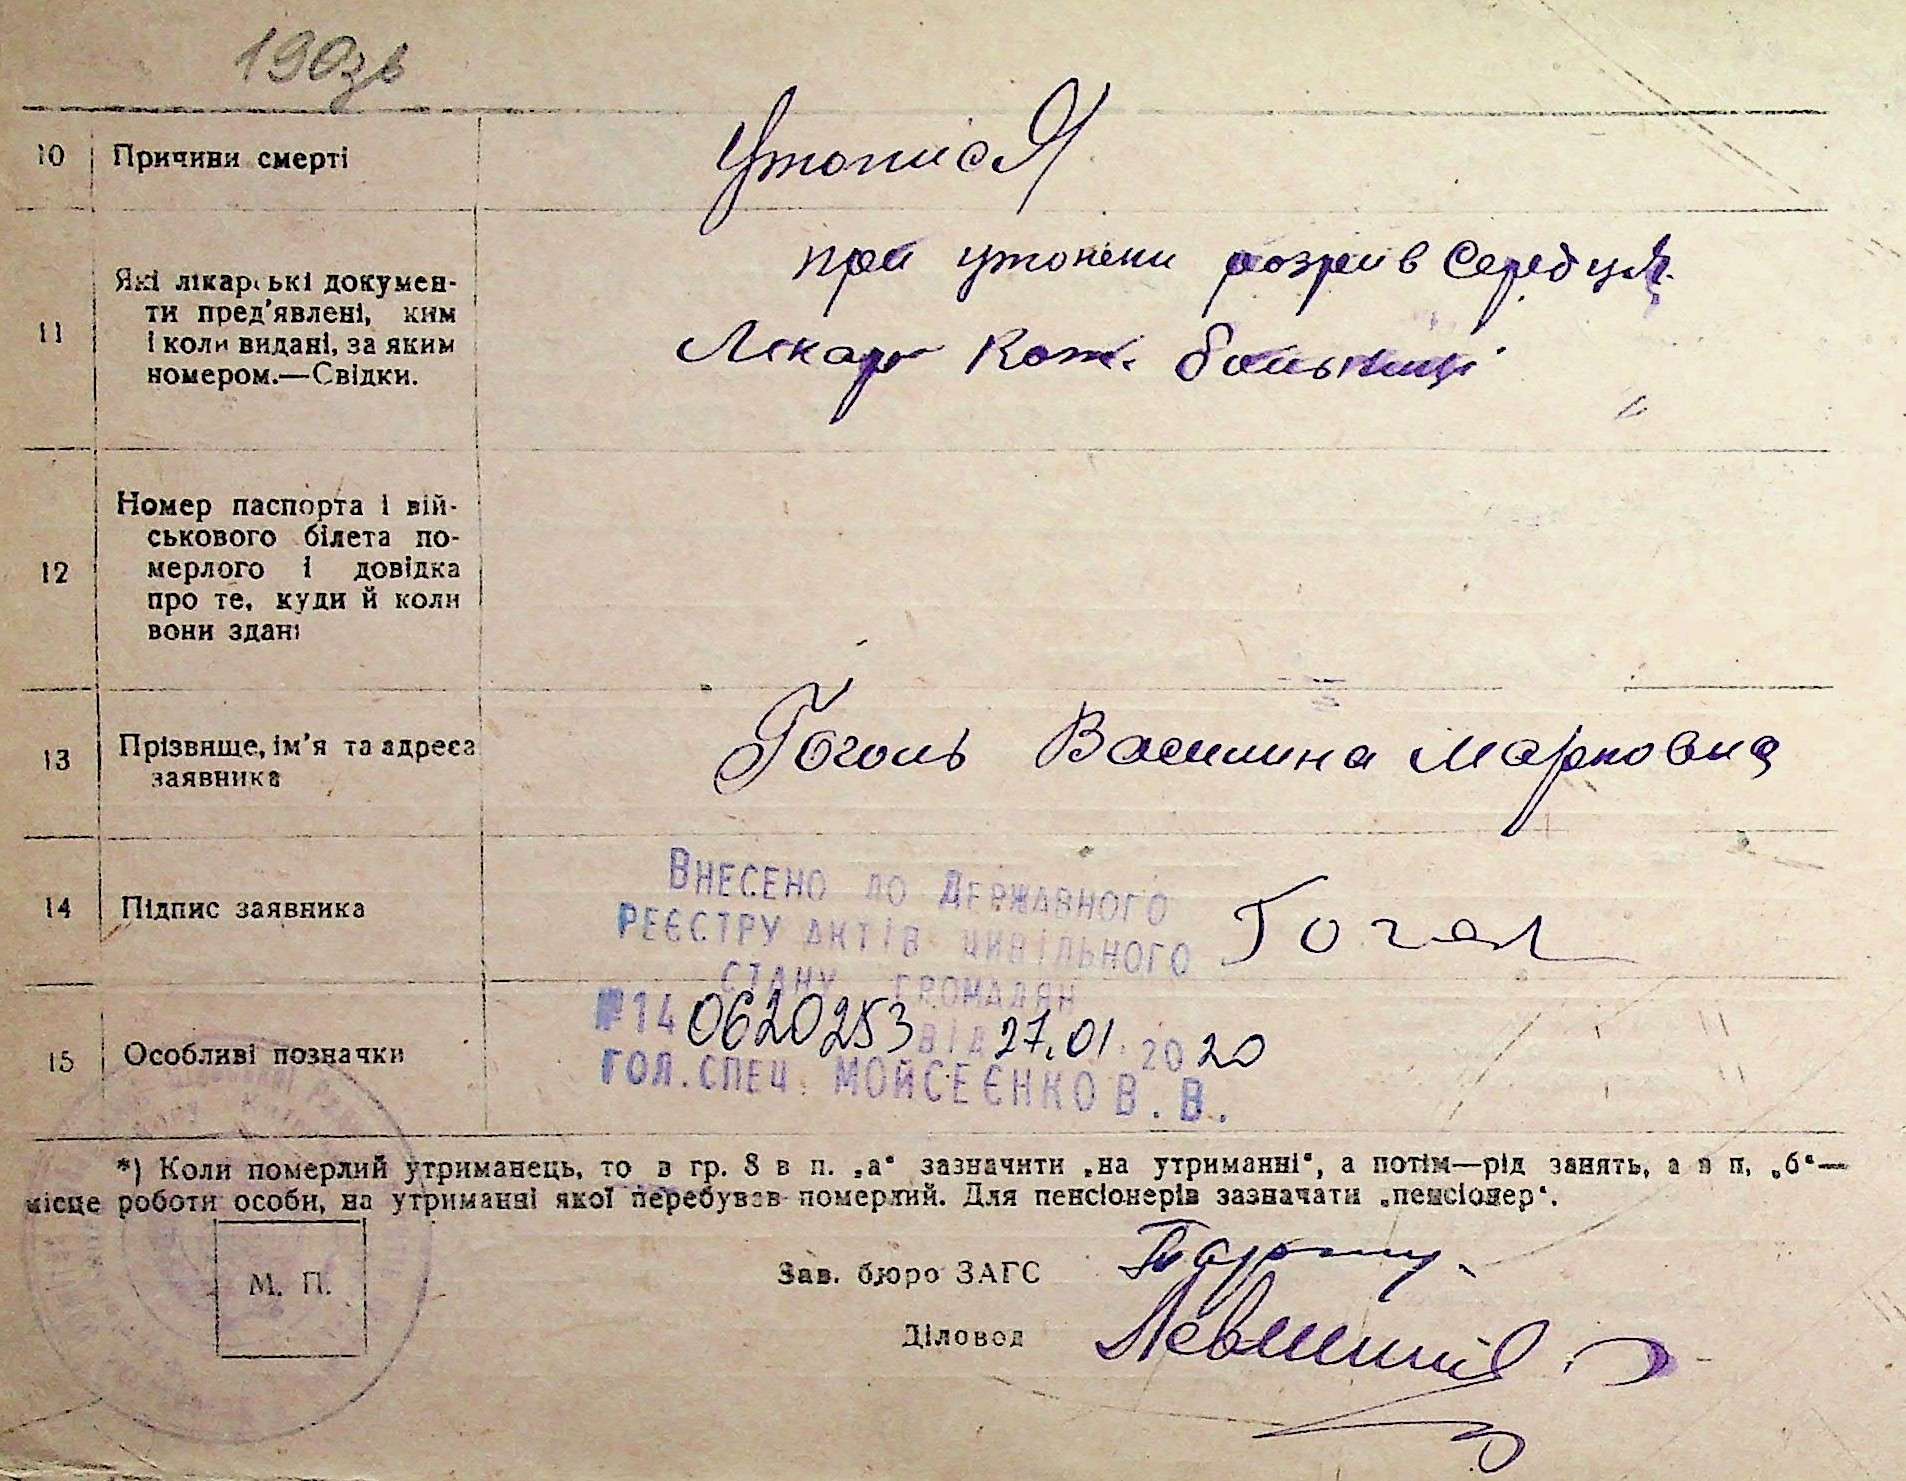 190зв
10 Причини смерті
Утопіся
11 Які лікарські докумен-
ти пред'явлені, ким
і коли видані, за яким
номером.—Свідки.
при утонени розрив Середця
Лікар Кож. больниці
12 Номер паспорта і вій-
ськового білета по-
мерлого і довідка
про те, куди й коли
вони здані
13 Прізвище, ім'я та адреса
заявника
Гоголь Василина Марковна
14 Підпис заявника
Гогол
Внесено до Державного
реєстру актів цивільного
стану громадян
№140620253 від 27.01.2020
гол. спец. Мойсеєнко В. В.
15 Особливі позначки
*) Коли померлий утриманець, то в гр. 8 в п. „а“ зазначити „на утриманні“, а потім—рід занять, а в п. „б“—
місце роботи особи, на утриманні якої перебував померлий. Для пенсіонерів зазначати „пенсіонер“.
М. П.
Зав. бюро ЗАГС
Діловод